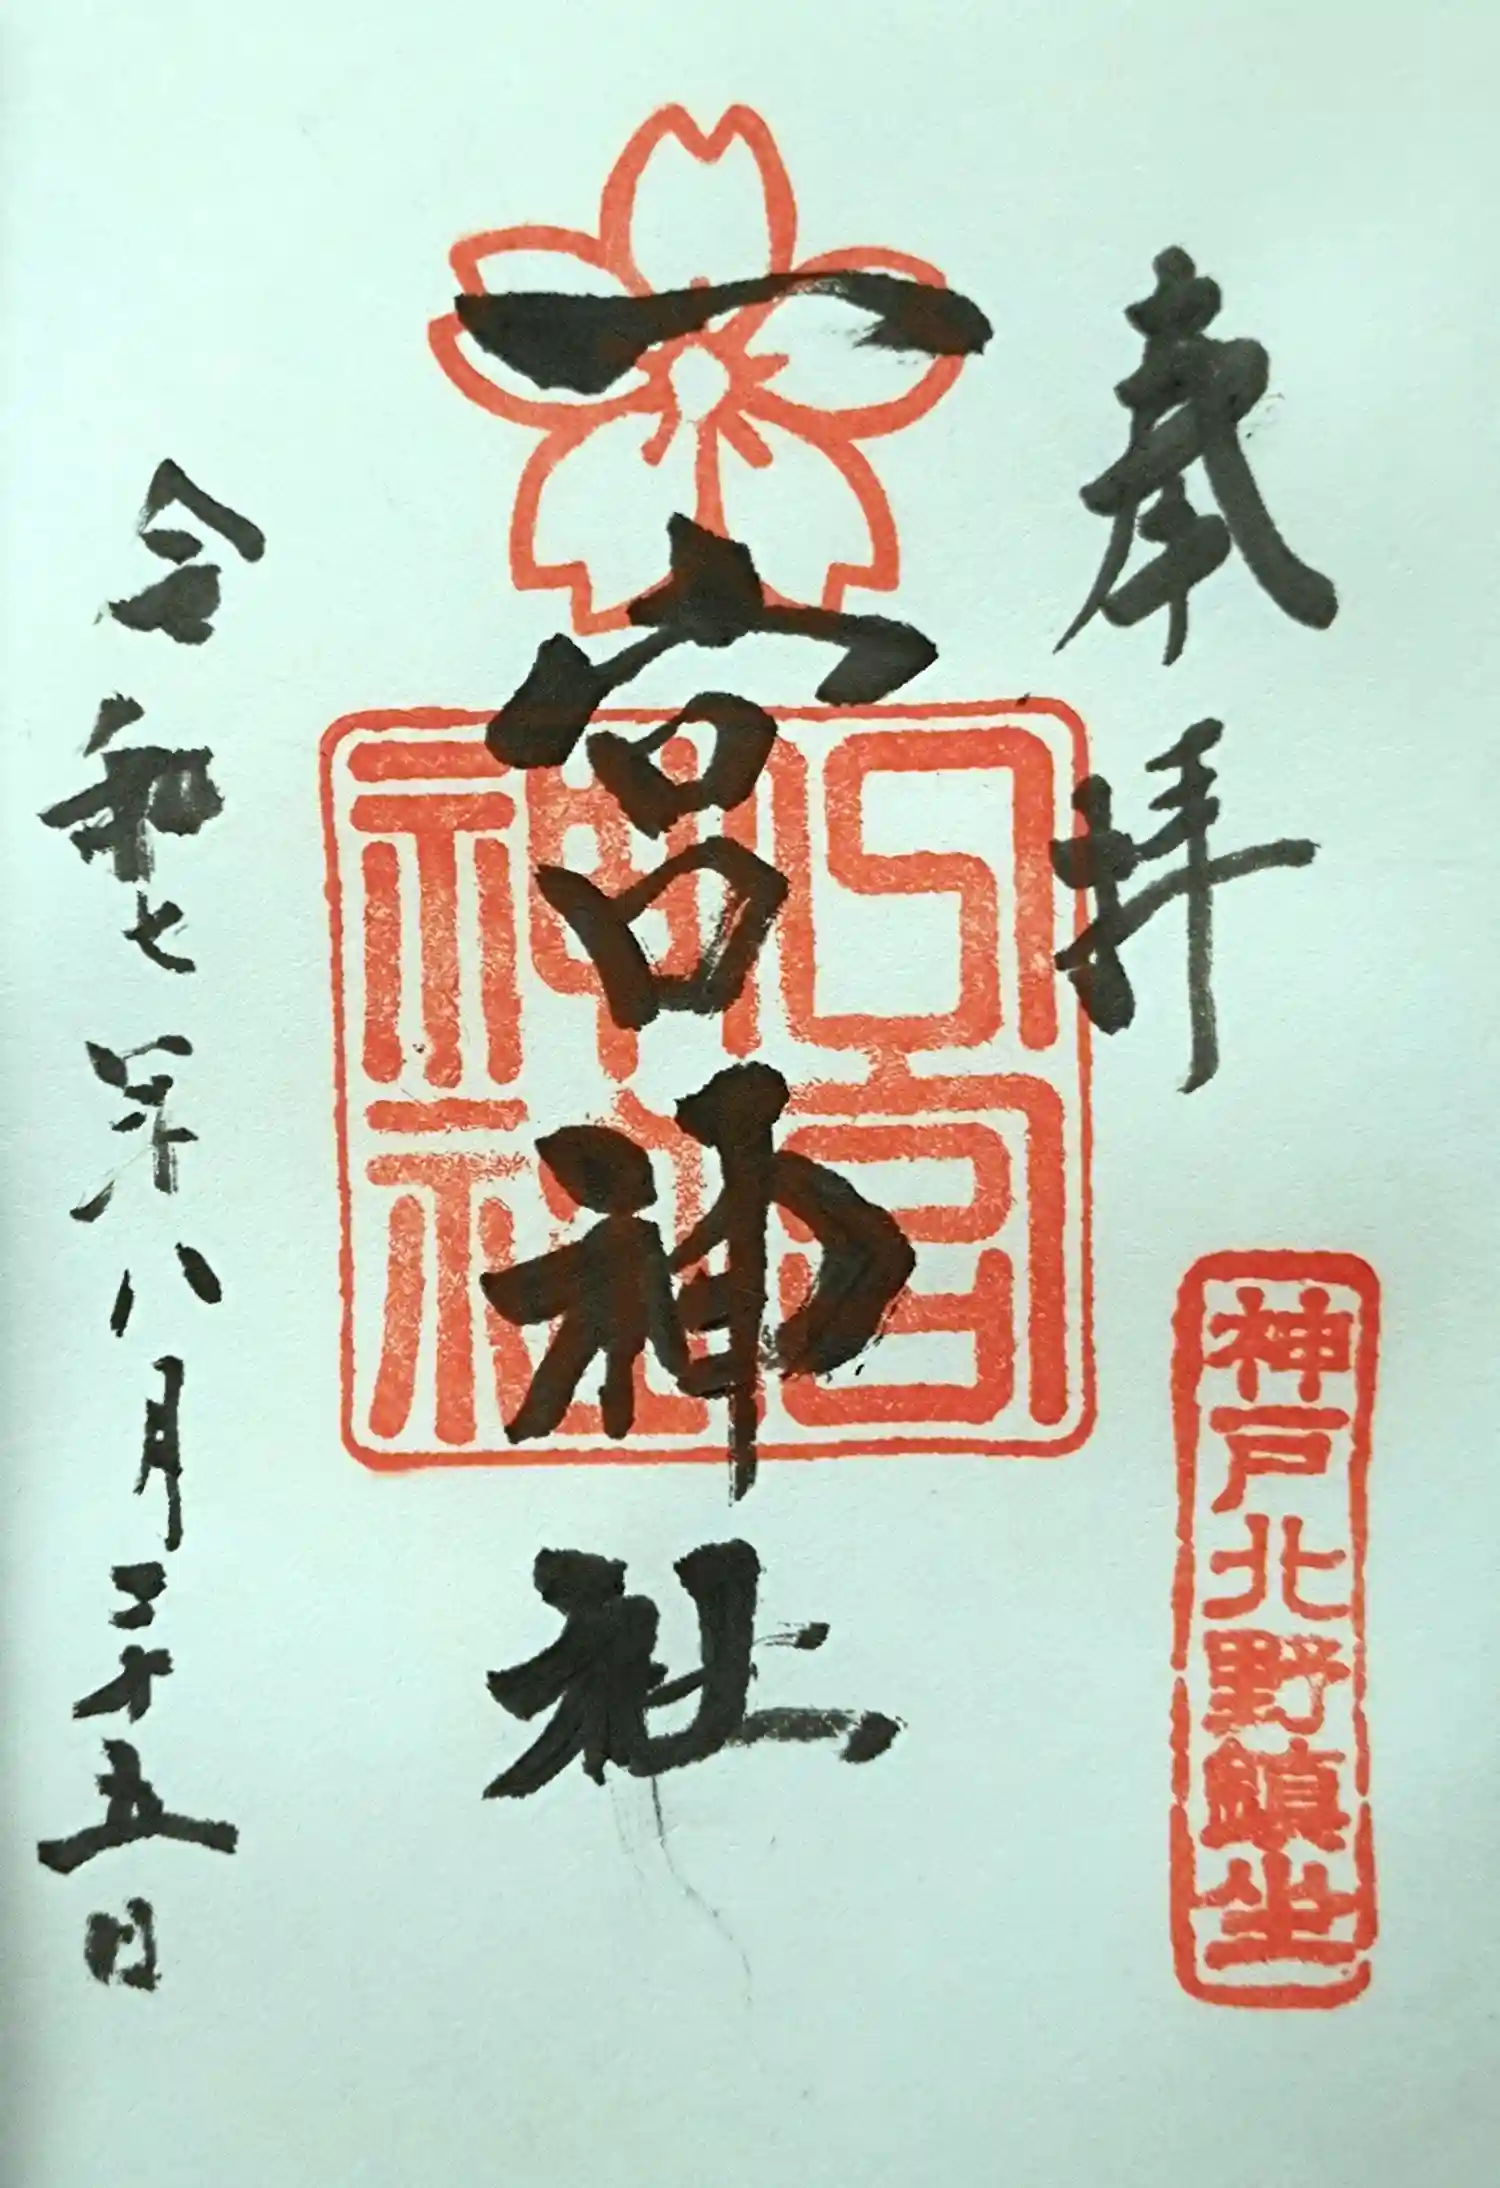 奉拝
神戸北野鎮坐
一宮神社
弌宮神社
令和七年八月二十五日